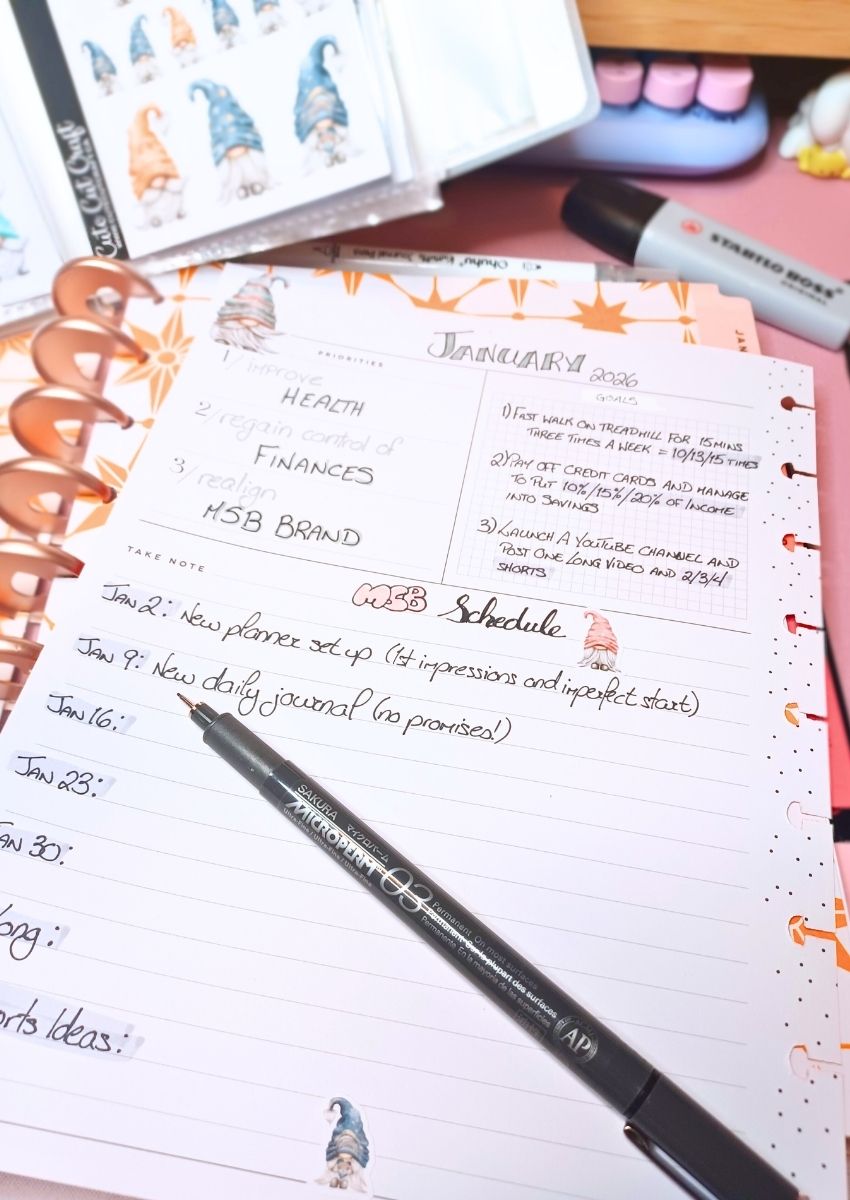 Cute Cat Craft
Ohuhu
Journal Pens
STABILO BOSS
ORIGINAL
JAN
PRIORITIES
JANUARY 2026
1/ improve
HEALTH
2/ regain control of
FINANCES
3/ realign
MSB BRAND
GOALS
1) FAST WALK ON TREADMILL FOR 15MINS
THREE TIMES A WEEK = 10/13/15 TIMES
2) PAY OFF CREDIT CARDS AND MANAGE
TO PUT 10%/15%/20% OF INCOME
INTO SAVINGS
3) LAUNCH A YOUTUBE CHANNEL AND
POST ONE LONG VIDEO AND 2/3/4
SHORTS
TAKE NOTE
MSB Schedule
JAN 2: New planner set up (1st impressions and imperfect start)
JAN 9: New daily journal (no promises!)
JAN 16:
JAN 23:
AN 30:
ong:
orts Ideas:
SAKURA マイクロパーム
MICROPERM 03
Ultra-Fine / Ultra-Fine / Ultra-Fine
Permanent On most surfaces
Permanent Sur la plupart des surfaces
Permanente En la mayoría de las superficies
AP